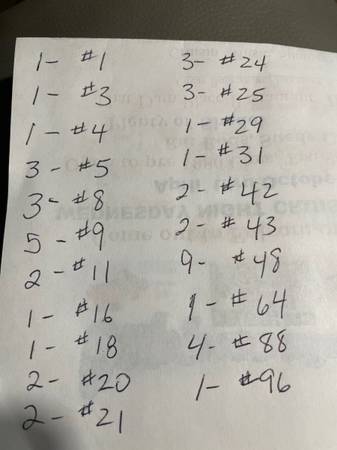 1- #1
1- #3
1- #4
3- #5
3- #8
5- #9
2- #11
1- #16
1- #18
2- #20
2- #21
3- #24
3- #25
1- #29
1- #31
2- #42
2- #43
9- #48
1- #64
4- #88
1- #96
WEDNESDAY NIGHT